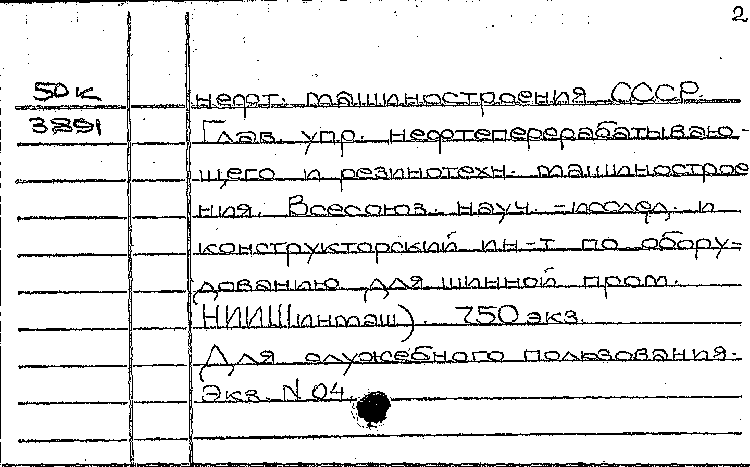 2
50к нефт. машиностроения СССР.
3891 Глав. упр. нефтеперерабатываю-
щего и резинотехн. машинострое
ния. Всесоюз. науч.-исслед. и
конструкторский ин-т по обору-
дованию для шинной пром.
НИИШинмаш). 750 экз.
Для служебного пользования.
Экз. N 04.